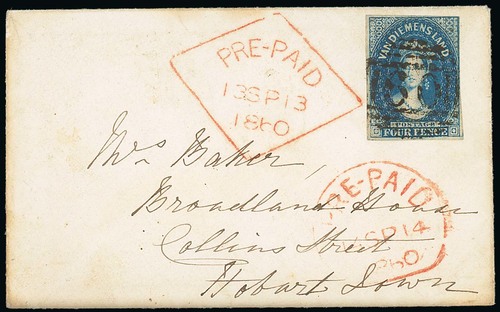 PRE-PAID
13SP13
1860
VAN DIEMENS LAND
POSTAGE
FOUR PENCE
Mrs Baker,
Broadland House
Collins Street
Hobart Town
PRE-PAID
SP14
1860